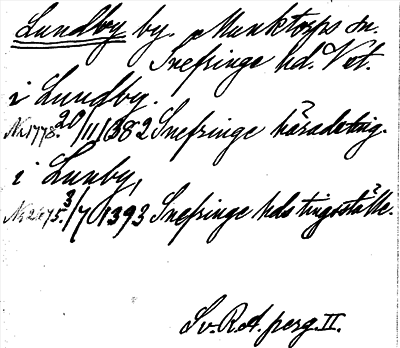 Lundby by. Munktorps sn.
Snefringe hd. Vstm.
i Lundby.
No. 1778. 20/11 1382 Snefringe häradsting.
i Lunby,
3/7 1393 Snefringe hds tingsställe.
Sv. R. A. perg. II.